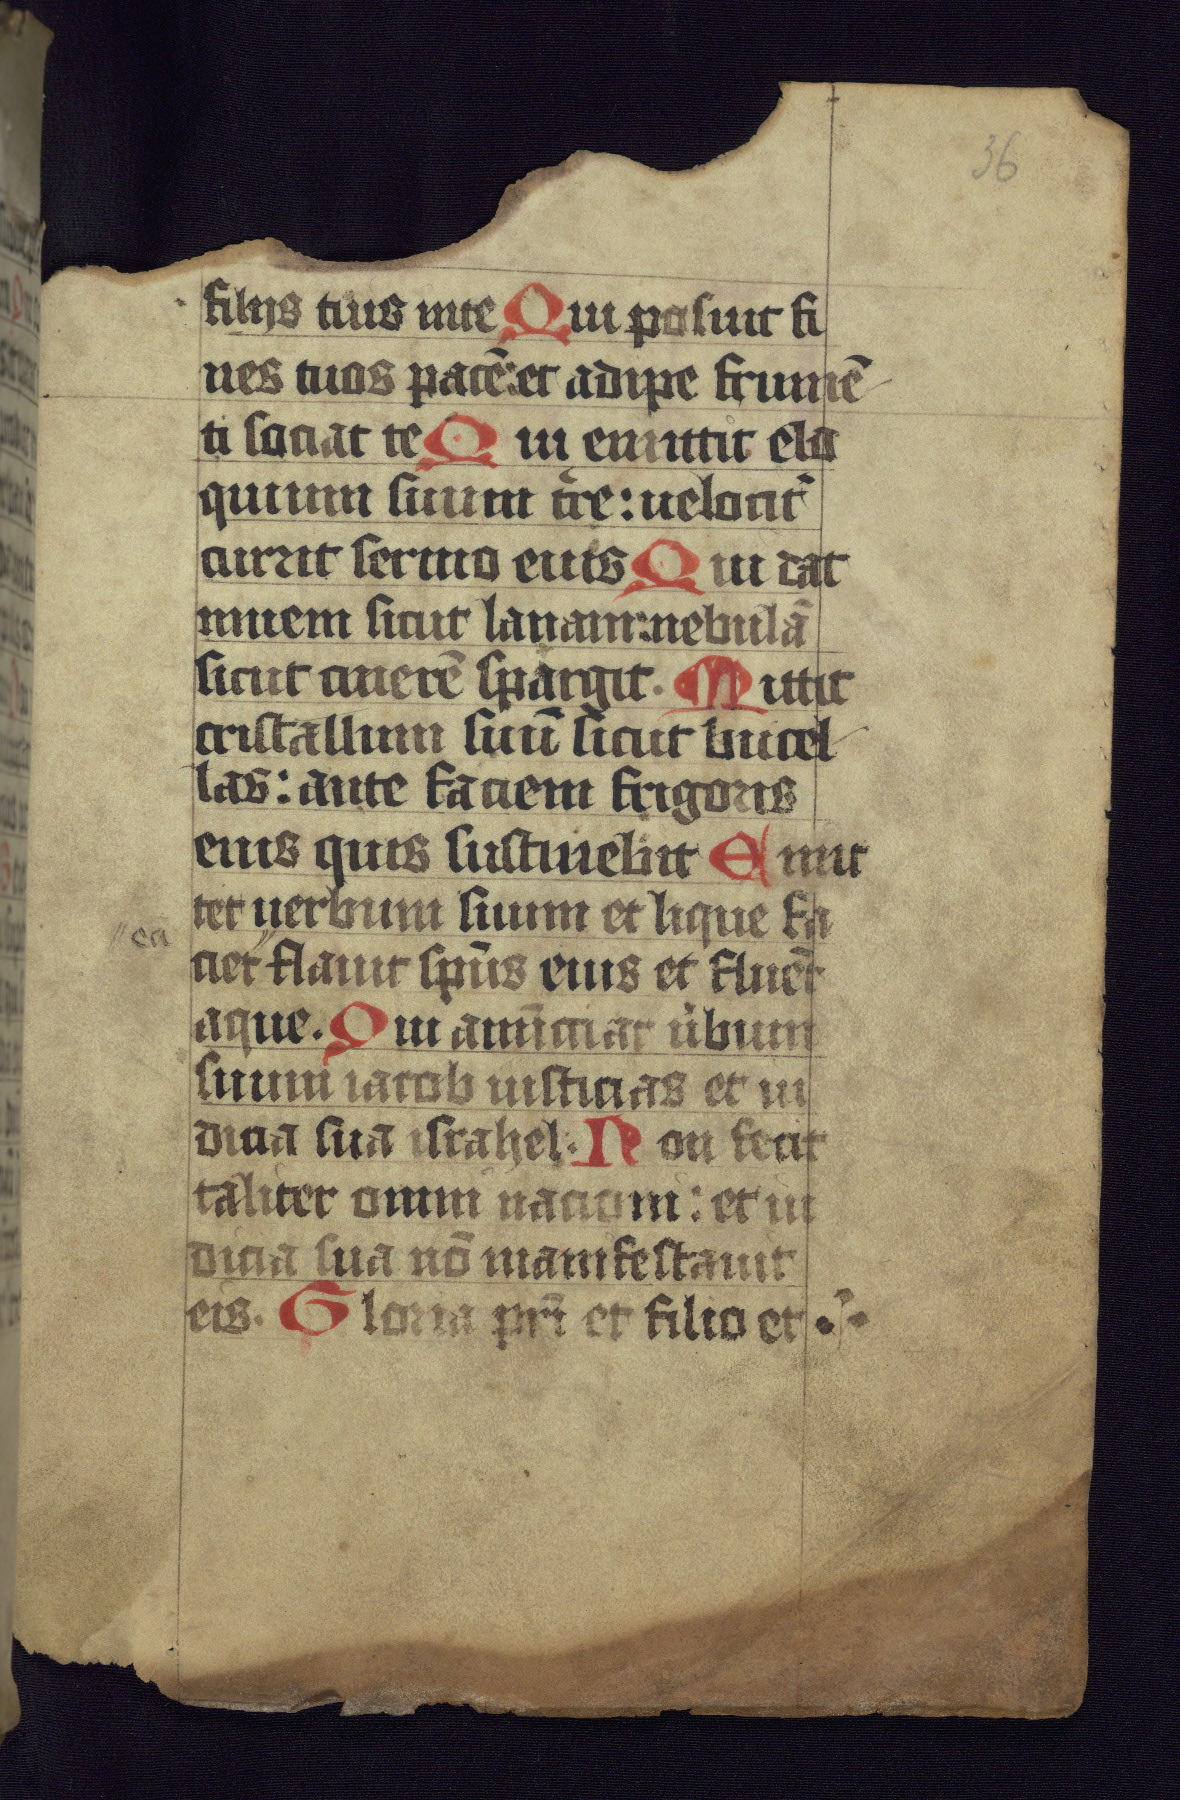 36
filijs tuis inte Qui posuit fi
nes tuos pacē: et adipe frumē
ti sociat te Qui emittit elo
quium suum t̄re: uelocit᷑
currit sermo eius Qui dat
niuem sicut lanam: nebulā
sicut cinerē spargit. Mittit
cristallum suū sicut bucel
las: ante faciem frigoris
eius quis sustinebit Emit
tet uerbum suum et lique fa
ciet flauit spūs eius et fluēt
ea
aque. Qui annūciat ūbum
suum iacob iusticias et iu
dicia sua israhel. Non fecit
taliter omni nacioni: et iu
dicia sua nō manifestauit
eis. Gloria pr̄i et filio et